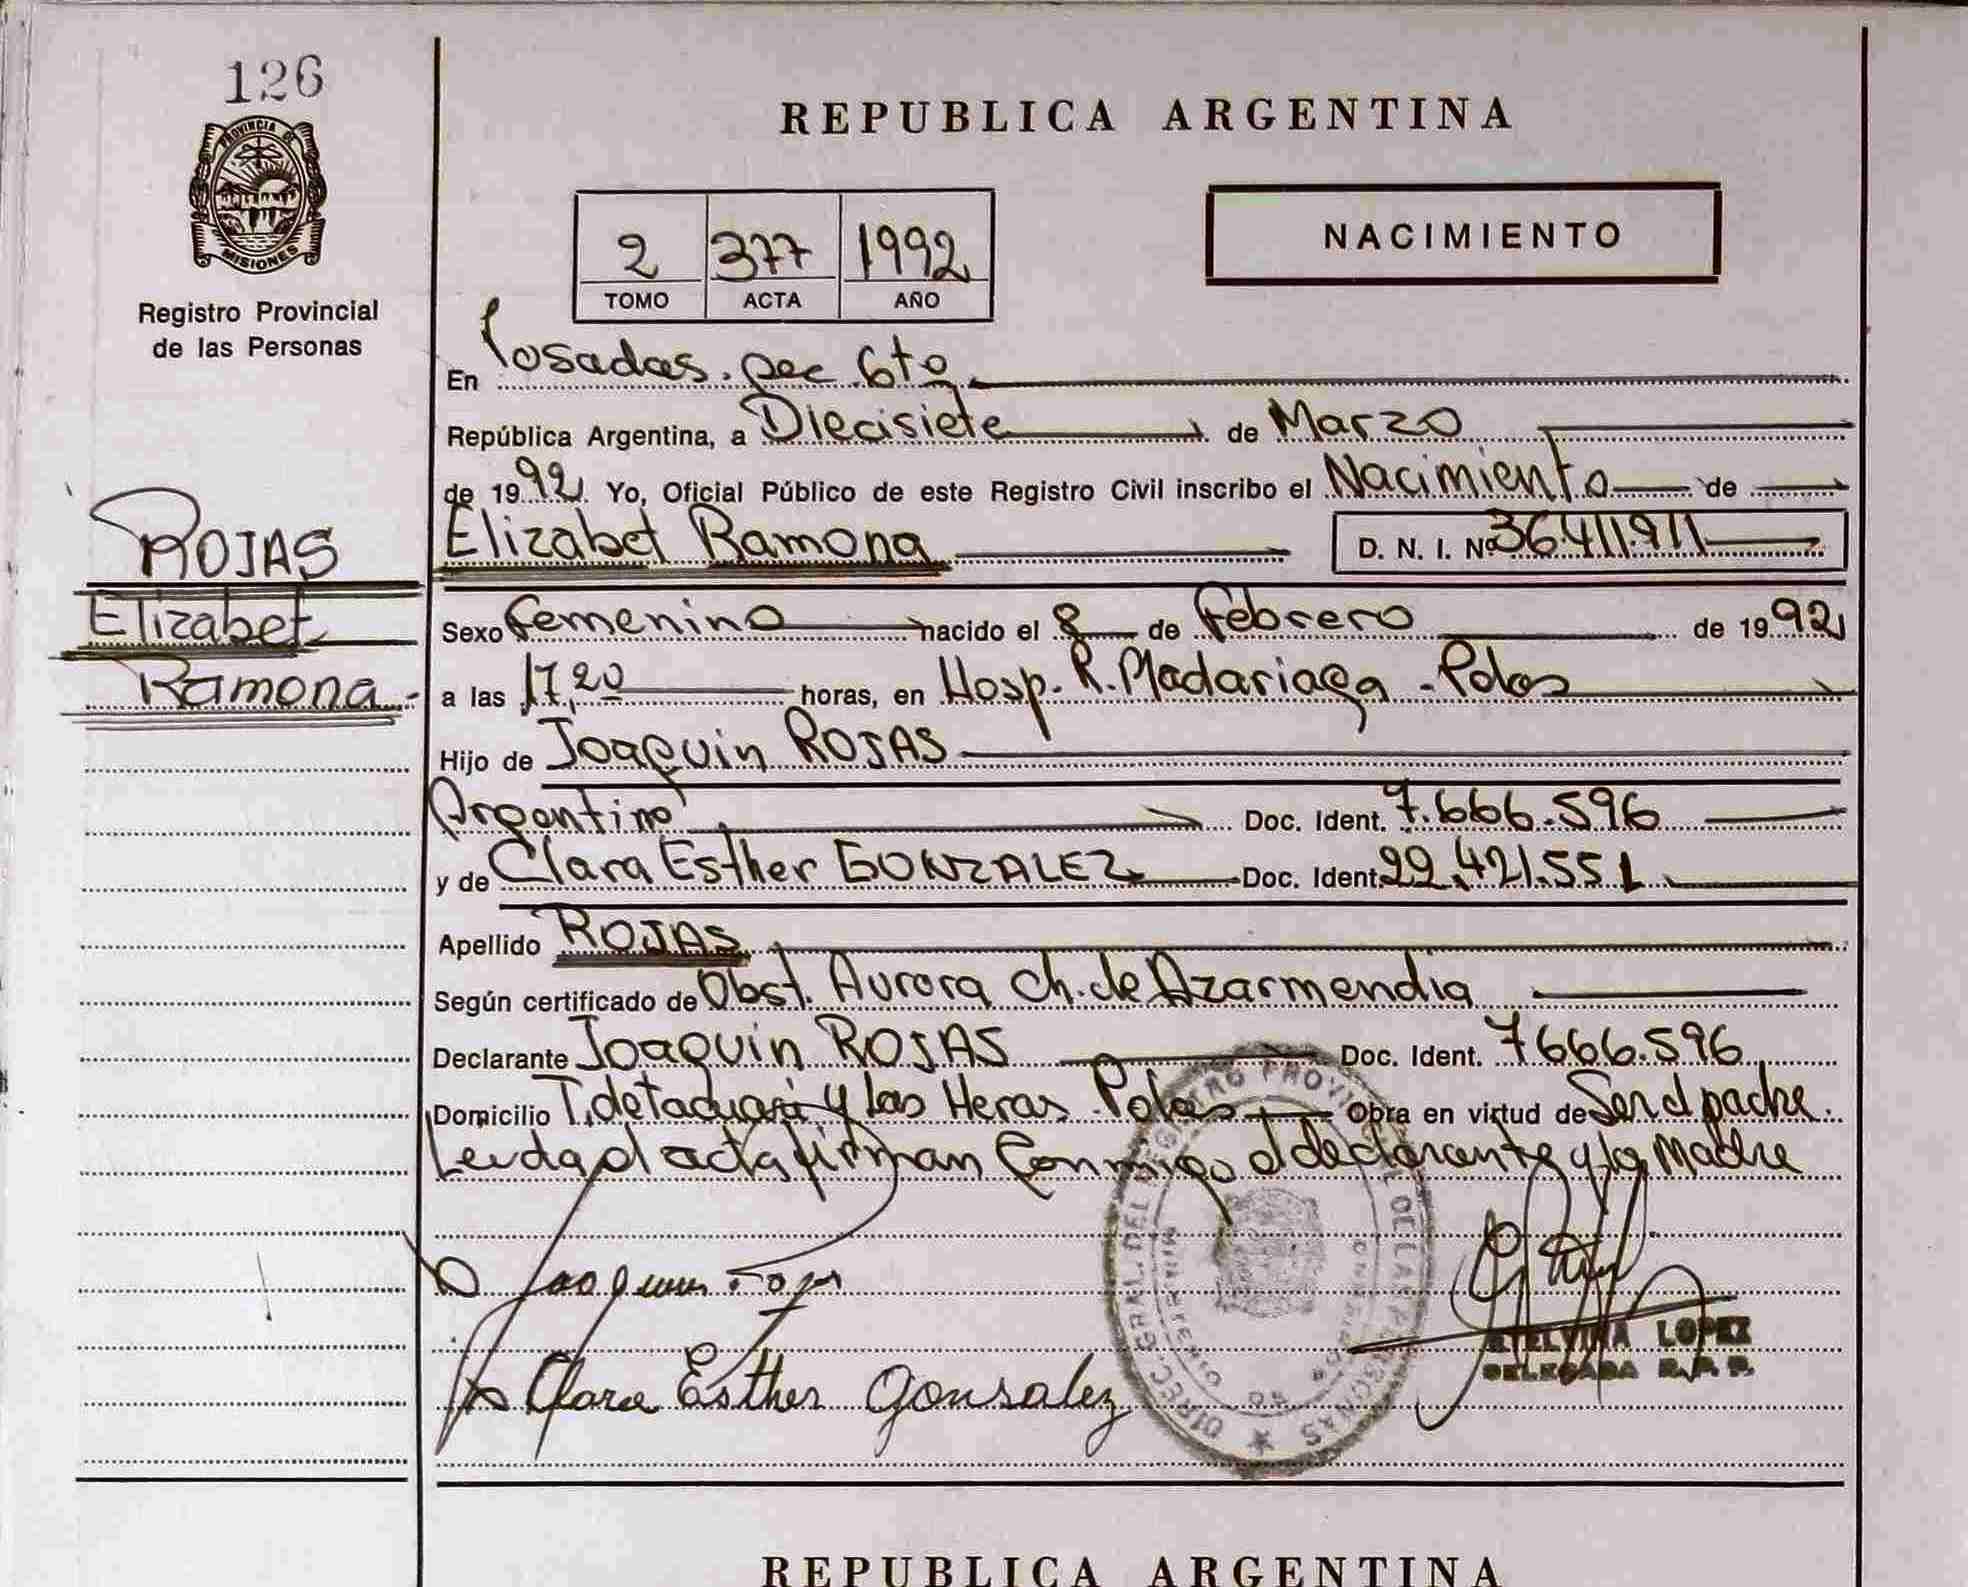 126
PROVINCIA DE
MISIONES
Registro Provincial
de las Personas
ROJAS
Elizabet
Ramona
REPUBLICA ARGENTINA
2 377 1992
TOMO ACTA AÑO
NACIMIENTO
En Posadas. secc 6tº
República Argentina, a Diecisiete de Marzo
de 1992 Yo, Oficial Público de este Registro Civil inscribo el Nacimiento de
Elizabet Ramona D. N. I. Nº 36.411.911
Sexo Femenino nacido el 8 de Febrero de 1992
a las 17,20 horas, en Hosp. R. Madariaga - Pdas
Hijo de Joaquin ROJAS
Argentino Doc. Ident. 7.666.596
y de Clara Esther GONZALEZ Doc. Ident. 22.421.551
Apellido ROJAS
Según certificado de Obst. Aurora Ch. de Azarmendia
Declarante Joaquin ROJAS Doc. Ident. 7666.596
Domicilio T. de tacuari y las Heras - Pdas Obra en virtud de Ser el padre.
Leida el acta firman conmigo el declarante y la Madre
Joaquin Rojas
Clara Esther Gonsalez
DIREC. GRAL. DEL REGISTRO PROVINCIAL DE LAS PERSONAS
ETELVINA LOPEZ
DELEGADA R.P.P.
REPUBLICA ARGENTINA